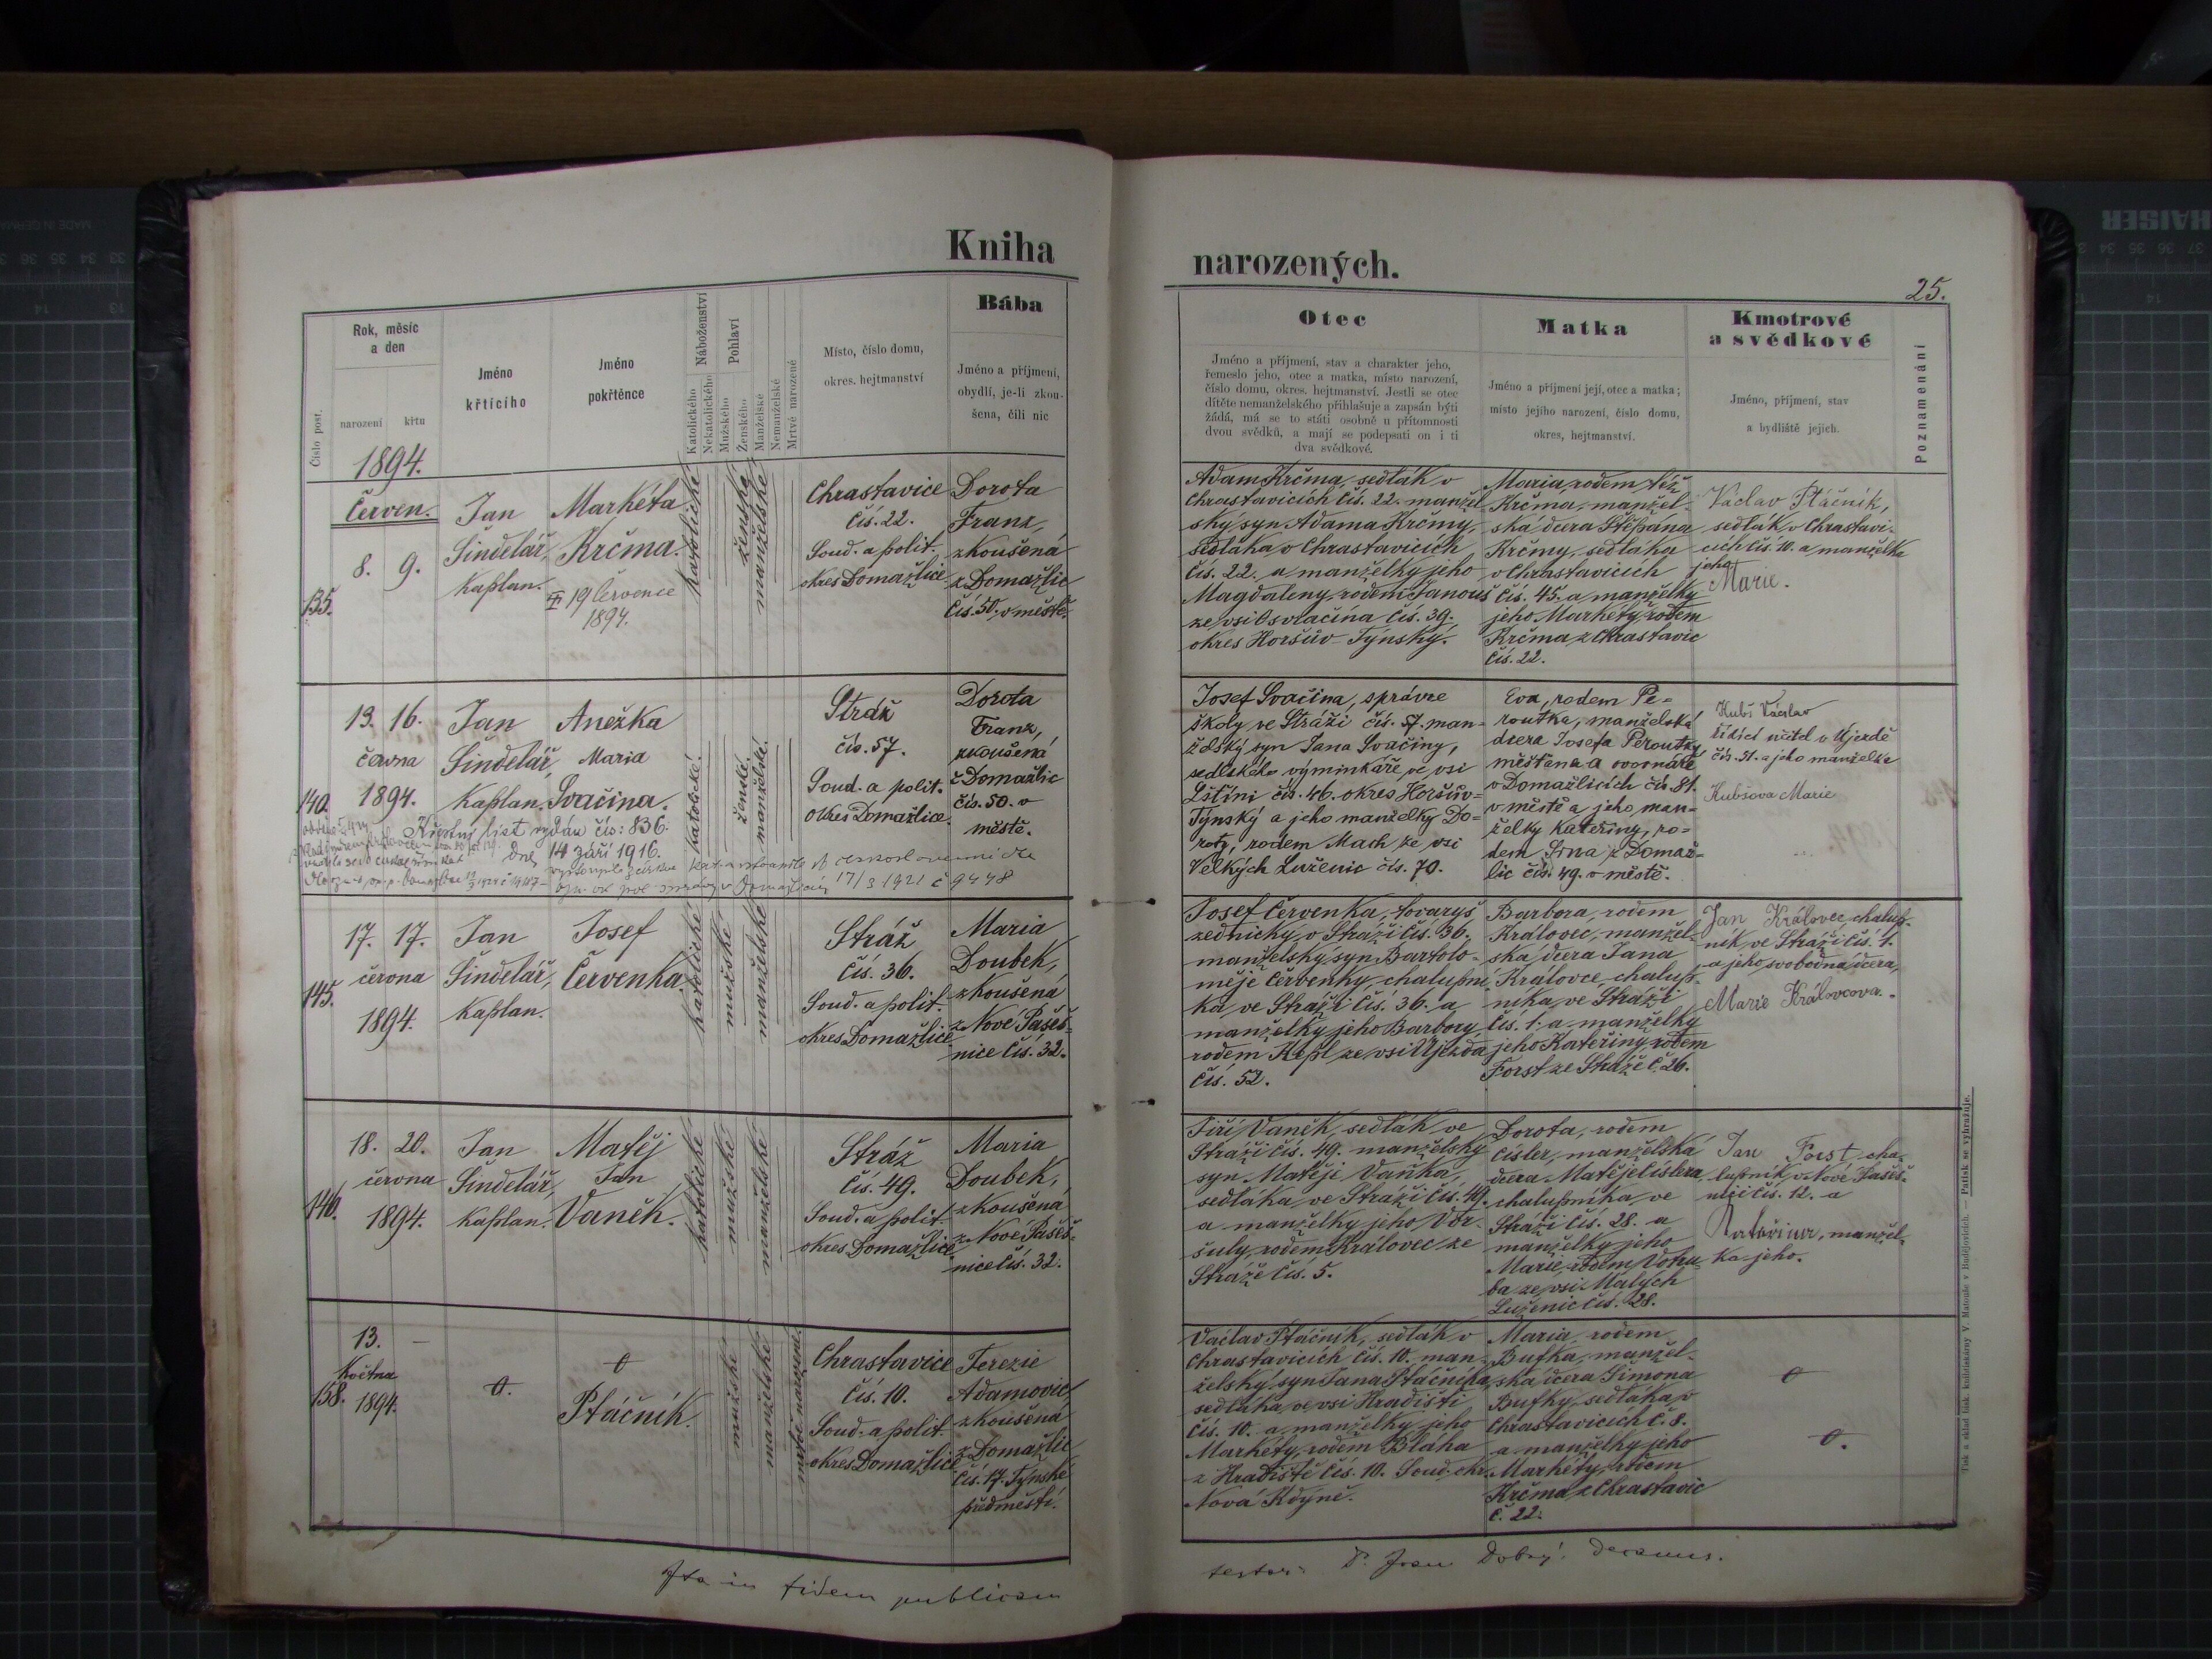 Kniha
narozených.
25.
Číslo post.
Rok, měsíc
a den
narození
křtu
Jméno
křtícího
Jméno
pokřtěnce
Náboženství
Katolického
Nekatolického
Pohlaví
Mužského
Ženského
Manželské
Nemanželské
Mrtvě narozené
Místo, číslo domu,
okres. hejtmanství
Bába
Jméno a příjmení,
obydlí, je-li zkou-
šena, čili nic
Otec
Jméno a příjmení, stav a charakter jeho,
řemeslo jeho, otec a matka, místo narození,
číslo domu, okres. hejtmanství. Jestli se otec
dítěte nemanželského přihlašuje a zapsán býti
žádá, má se to státi osobně u přítomnosti
dvou svědků, a mají se podepsati on i ti
dva svědkové.
Matka
Jméno a příjmení její, otec a matka;
místo jejího narození, číslo domu,
okres, hejtmanství.
Kmotrové
a svědkové
Jméno, příjmení, stav
a bydliště jejich.
Poznamenání
1894.
Červen.
135.
8. 9.
Jan
Šindelář,
Kaplan.
Markéta
Krčma.
19 července
1894.
katolické
ženské
manželské
Chrastavice
čís. 22.
Soud. a polit.
okres Domažlice
Dorota
Franz,
zkoušená
z Domažlic
čís. 50. v městě.
Adam Krčma, sedlák v
Chrastavicích čís. 22. manžel
ský syn Adama Krčmy,
sedláka v Chrastavicích
čís. 22. a manželky jeho
Magdaleny, rodem Janouš
ze vsi Osvračína čís. 39.
okres Horšův-Týnský.
Maria, rodem též
Krčma, manžel-
ská dcera Štěpána
Krčmy, sedláka
v Chrastavicích
čís. 45. a manželky
jeho Markéty rodem
Krčma z Chrastavic
čís. 22.
Václav Ptáčník,
sedlák v Chrastavi-
cích čís. 10. a manželka
jeho
Marie.
140.
13. 16.
června
1894.
Jan
Šindelář,
Kaplan.
Anežka
Maria
Svačina.
katolické.
ženské.
manželské.
Stráž
čís. 57.
Soud. a polit.
okres Domažlice.
Dorota
Franz,
zkoušená
z Domažlic
čís. 50. v
městě.
Křestný list vydán čís: 836.
Dne 14 září 1916.
17/3 1921 č 9448
Josef Svačina, správce
školy ve Stráži čís. 57. man-
želský syn Jana Svačiny,
sedlského výminkáře ve vsi
Lštíni čís. 46. okres Horšův-
Týnský a jeho manželky Do-
roty, rodem Mach ze vsi
Velkých Luženic čís. 70.
Eva, rodem Pe-
routka, manželská
dcera Josefa Peroutky,
měštana a ovocnáře
v Domažlicích čís. 81.
v městě a jeho man-
želky Kateřiny, ro-
dem Srna z Domaž-
lic čís. 49. v městě.
Kubš Václav
řídící učitel v Újezdě
čís. 51. a jeho manželka
Kubšova Marie
145.
17. 17.
června
1894.
Jan
Šindelář,
Kaplan.
Josef
Červenka
katolické
mužské
manželské
Stráž
čís. 36.
Soud. a polit.
okres Domažlice
Maria
Doubek,
zkoušená
z Nové Pašeš-
nice čís. 32.
Josef Červenka, tovaryš
zednický v Stráži čís. 36.
manželský syn Bartolo-
měje Červenky, chalupní-
ka ve Stráži čís. 36. a
manželky jeho Barbory
rodem Kepl ze vsi Újezda
čís. 52.
Barbora, rodem
Královec, manžel-
ská dcera Jana
Královce, chalup-
níka ve Stráži
čís. 1. a manželky
jeho Kateřiny rodem
Forst ze Stráže č. 26.
Jan Královec, chalup-
ník ve Stráži čís. 1.
a jeho svobodná dcera,
Marie Královcova.
146.
18. 20.
června
1894.
Jan
Šindelář,
Kaplan.
Matěj
Jan
Vaněk.
katolické
mužské
manželské
Stráž
čís. 49.
Soud. a polit.
okres Domažlice
Maria
Doubek,
zkoušená
z Nové Pašeš-
nice čís. 32.
Jiří Vaněk, sedlák ve
Stráži čís. 49. manželský
syn Matěje Vaňka
sedláka ve Stráži čís. 49.
a manželky jeho Vor-
šuly, rodem Královec ze
Stráže čís. 5.
Dorota, rodem
Císler, manželská
dcera Matěje Císlera,
chalupníka ve
Stráži čís. 28. a
manželky jeho
Marie, rodem Vohn
ba ze vsi Malých
Luženic čís. 28.
Jan Forst, cha-
lupník v Nové Pašeš-
nici čís. 12. a
Kateřina, manžel-
ka jeho.
158.
13. —
Května
1894.
Ptáčník.
mužské
manželské
mrtvě narozené
Chrastavice
čís. 10.
Soud. a polit.
okres Domažlice
Terezie
Adamovic,
zkoušená
z Domažlic
čís. 17. Týnské
předměstí.
Václav Ptáčník, sedlák v
Chrastavicích čís. 10. man-
želský syn Jana Ptáčníka,
sedláka ve vsi Hradišti
čís. 10. a manželky jeho
Markéty, rodem Bláha
z Hradiště čís. 10. Soud. okr.
Nová Kdýně.
Maria, rodem
Bufka, manžel-
ská dcera Šimona
Bufky, sedláka v
Chrastavicích č. 8.
a manželky jeho
Markéty, rodem
Krčma z Chrastavic
č. 22.
Ita in fidem publicam
testor: P. Joan Dobrý. decanus.
Tisk a sklad tisk. knihtiskárny V. Matouše v Budějovicích. — Patisk se vyhražuje.